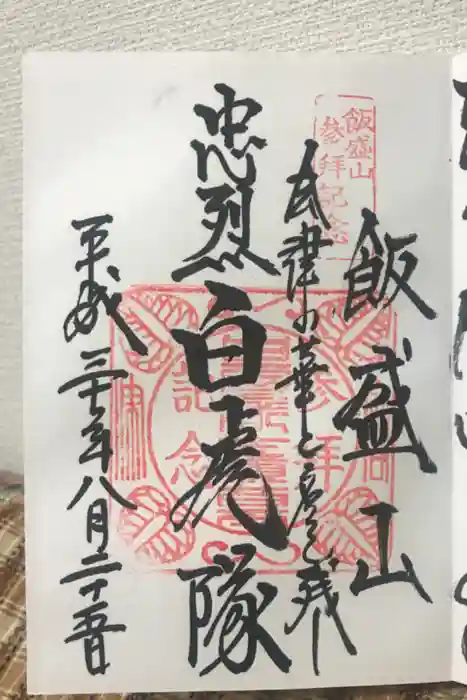 飯盛山
参拝記念
飯盛山
会津の華と
忠烈白虎隊
平成三十年八月二十五日
参拝
記念